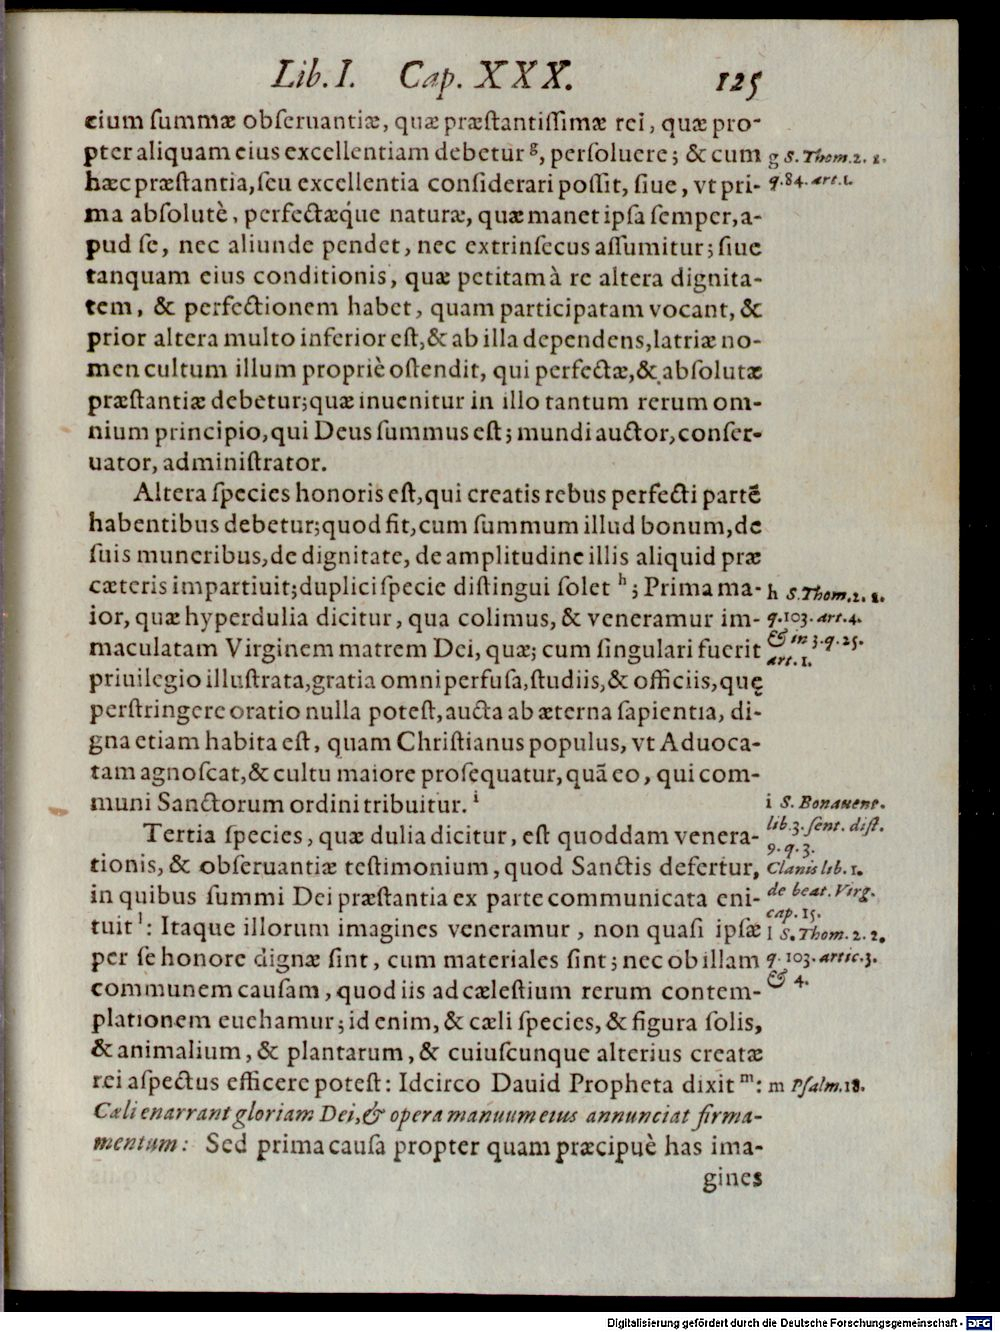 Lib. I. Cap. XXX. 125
cium ſummæ obſeruantiæ, quæ præſtantiſſimæ rei, quæ pro-
pter aliquam eius excellentiam debetur g, perſoluere; & cum
hæc præſtantia, ſeu excellentia conſiderari poſſit, ſiue, vt pri-
ma abſolutè, perfectæq́ue naturæ, quæ manet ipſa ſemper, a-
pud ſe, nec aliunde pendet, nec extrinſecus aſſumitur; ſiue
tanquam eius conditionis, quæ petitam à re altera dignita-
tem, & perfectionem habet, quam participatam vocant, &
prior altera multo inferior eſt, & ab illa dependens, latriæ no-
men cultum illum propriè oſtendit, qui perfectæ, & abſolutæ
præſtantiæ debetur; quæ inuenitur in illo tantum rerum om-
nium principio, qui Deus ſummus eſt; mundi auctor, conſer-
uator, adminiſtrator.
Altera ſpecies honoris eſt, qui creatis rebus perfecti partē
habentibus debetur; quod fit, cum ſummum illud bonum, de
ſuis muneribus, de dignitate, de amplitudine illis aliquid præ
cæteris impartiuit; duplici ſpecie diſtingui ſolet h; Prima ma-
ior, quæ hyperdulia dicitur, qua colimus, & veneramur im-
maculatam Virginem matrem Dei, quæ; cum ſingulari fuerit
priuilegio illuſtrata, gratia omni perfuſa, ſtudiis, & officiis, quę
perſtringere oratio nulla poteſt, aucta ab æterna ſapientia, di-
gna etiam habita eſt, quam Chriſtianus populus, vt Aduoca-
tam agnoſcat, & cultu maiore proſequatur, quã eo, qui com-
muni Sanctorum ordini tribuitur. i
Tertia ſpecies, quæ dulia dicitur, eſt quoddam venera-
tionis, & obſeruantiæ teſtimonium, quod Sanctis defertur,
in quibus ſummi Dei præſtantia ex parte communicata eni-
tuit l: Itaque illorum imagines veneramur, non quaſi ipſæ
per ſe honore dignæ ſint, cum materiales ſint; nec ob illam
communem cauſam, quod iis ad cæleſtium rerum contem-
plationem euehamur; id enim, & cæli ſpecies, & figura ſolis,
& animalium, & plantarum, & cuiuſcunque alterius creatæ
rei aſpectus efficere poteſt: Idcirco Dauid Propheta dixit m:
Cæli enarrant gloriam Dei, & opera manuum eius annunciat firma-
mentum: Sed prima cauſa propter quam præcipuè has ima-
gines
g S. Thom. 2. 2.
q. 84. art. 1.
h S. Thom. 2. 2.
q. 103. art. 4.
& in 3. q. 25.
art. 1.
i S. Bonauent.
lib. 3. ſent. diſt.
9. q. 3.
Clanis lib. 1.
de beat. Virg.
cap. 15.
l S. Thom. 2. 2.
q. 103. artic. 3.
& 4.
m Pſalm. 18.
Digitalisierung gefördert durch die Deutsche Forschungsgemeinschaft - DFG